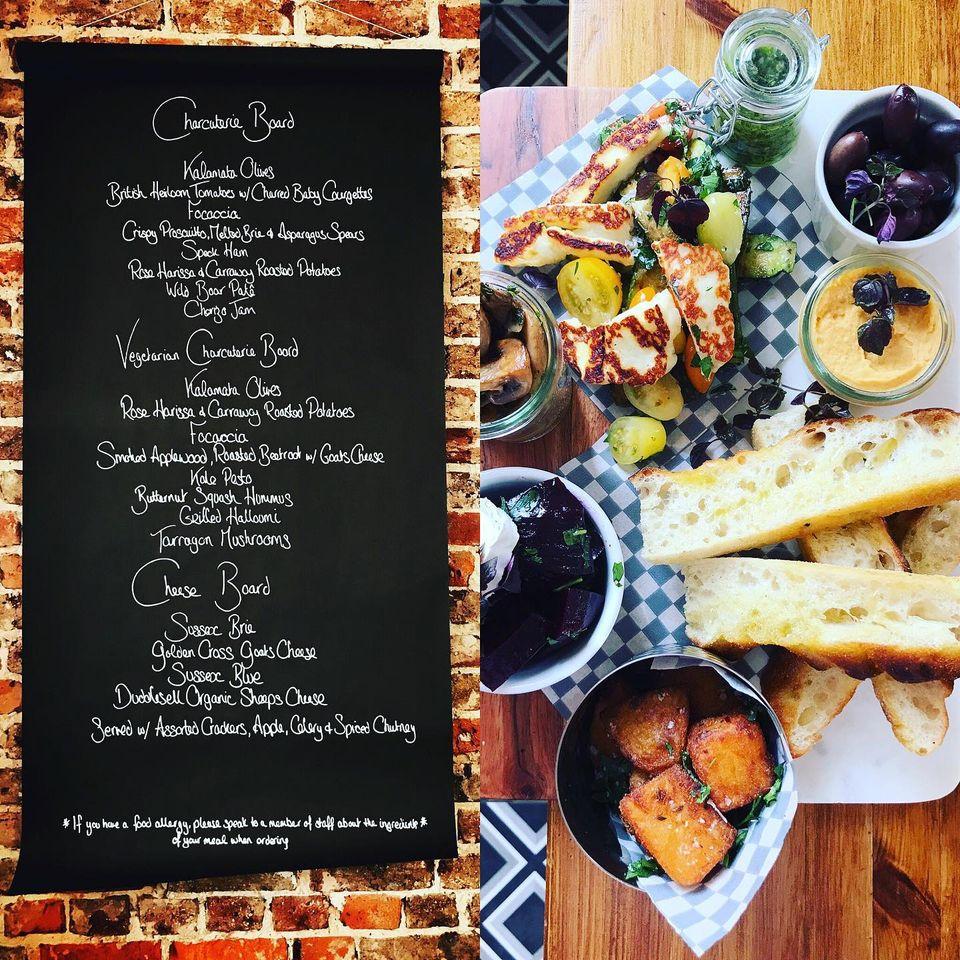 Charcuterie Board
Kalamata Olives
British Heirloom Tomatoes w/ Charred Baby Courgettes
Focaccia
Crispy Proscuitto, Melted Brie & Asparagus Spears
Speck Ham
Rose Harissa & Carraway Roasted Potatoes
Wild Boar Patê
Chorizo Jam
Vegetarian Charcuterie Board
Kalamata Olives
Rose Harissa & Carraway Roasted Potatoes
Focaccia
Smoked Applewood, Roasted Beetroot w/ Goats Cheese
Kale Pesto
Butternut Squash Hummus
Grilled Halloumi
Tarragon Mushrooms
Cheese Board
Sussex Brie
Golden Cross Goats Cheese
Sussex Blue
Duddleswell Organic Sheeps Cheese
Served w/ Assorted Crackers, Apple, Celery & Spiced Chutney
* If you have a food allergy, please speak to a member of staff about the ingredients *
of your meal when ordering